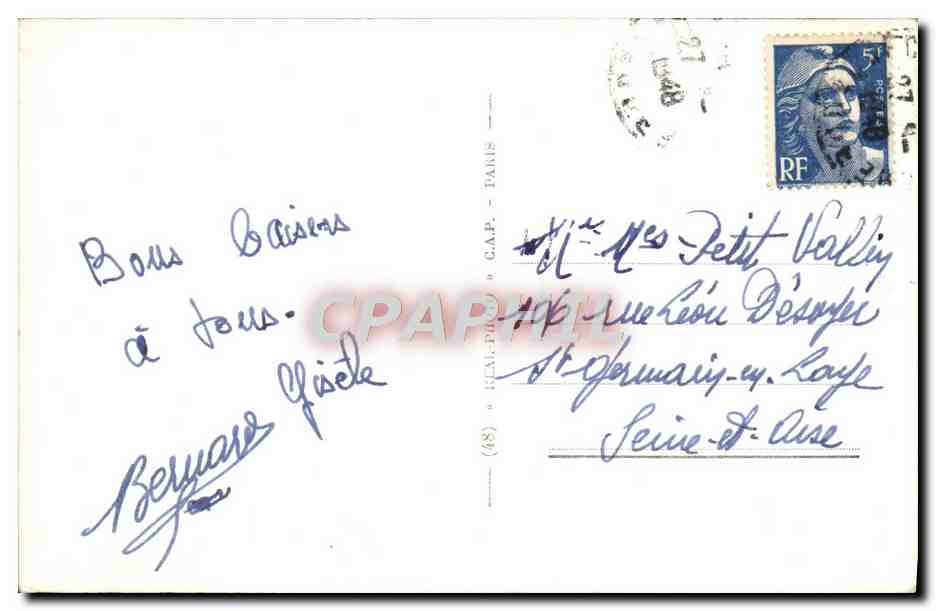 Bons baisers
à tous.
Gisèle
Bernard
(48) « REAL-PHOTO » C.A.P. - PARIS
CPAPHIL
27
1948
5F
POSTES
RF
Petit Vallin
106 rue Léon Désoyer
St Germain-en-Laye
Seine-et-Oise